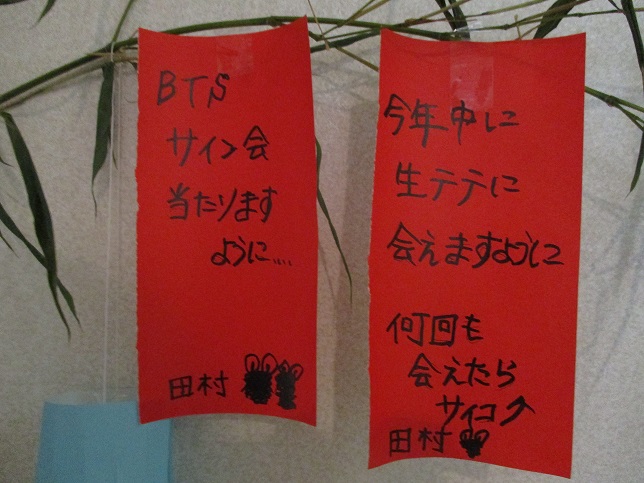 BTS
サイン会
当たります
ように....
田村
今年中に
生テテに
会えますように
何回も
会えたら
サイコー
田村